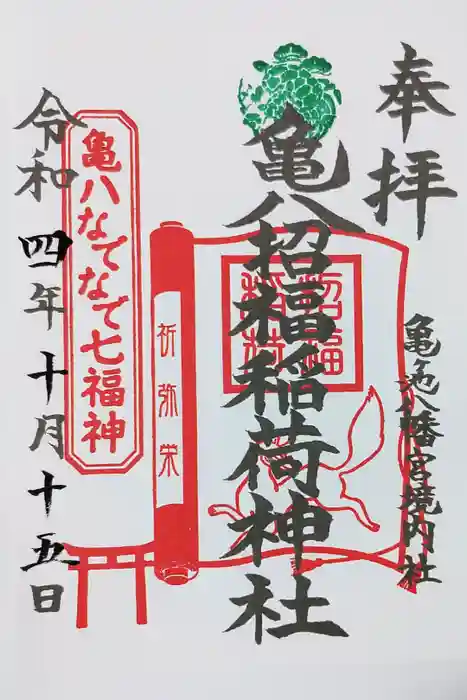 奉拝
亀池八幡宮境内社
亀八招福稲荷神社
招福
稲荷
祈弥栄
亀八なでなで七福神
令和四年十月十五日